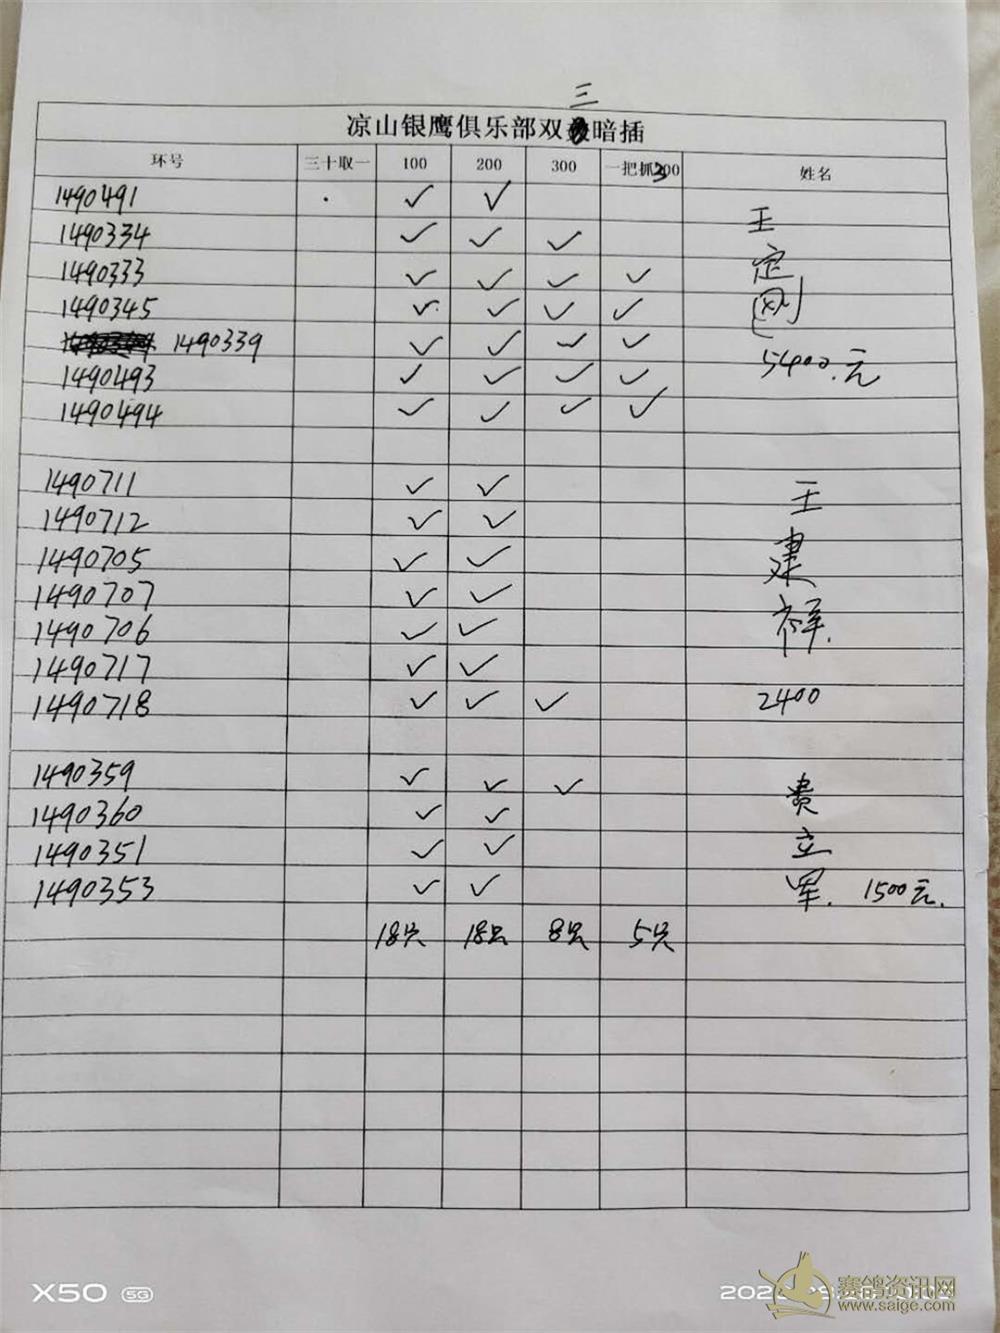 三
凉山银鹰俱乐部双暗插
环号 三十取一 100 200 300 一把抓300 姓名
1490491 ✓ ✓
1490334 ✓ ✓ ✓
1490333 ✓ ✓ ✓ ✓
1490345 ✓ ✓ ✓ ✓
1490339 ✓ ✓ ✓ ✓
1490493 ✓ ✓ ✓ ✓
1490494 ✓ ✓ ✓ ✓
王定刚
5400.元
1490711 ✓ ✓
1490712 ✓ ✓
1490705 ✓ ✓
1490707 ✓ ✓
1490706 ✓ ✓
1490717 ✓ ✓
1490718 ✓ ✓ ✓
王建祥.
2400
1490359 ✓ ✓ ✓
1490360 ✓ ✓
1490351 ✓ ✓
1490353 ✓ ✓
贵立军. 1500元.
18只 18只 8只 5只
X50 5G
赛鸽资讯网
www.saige.com